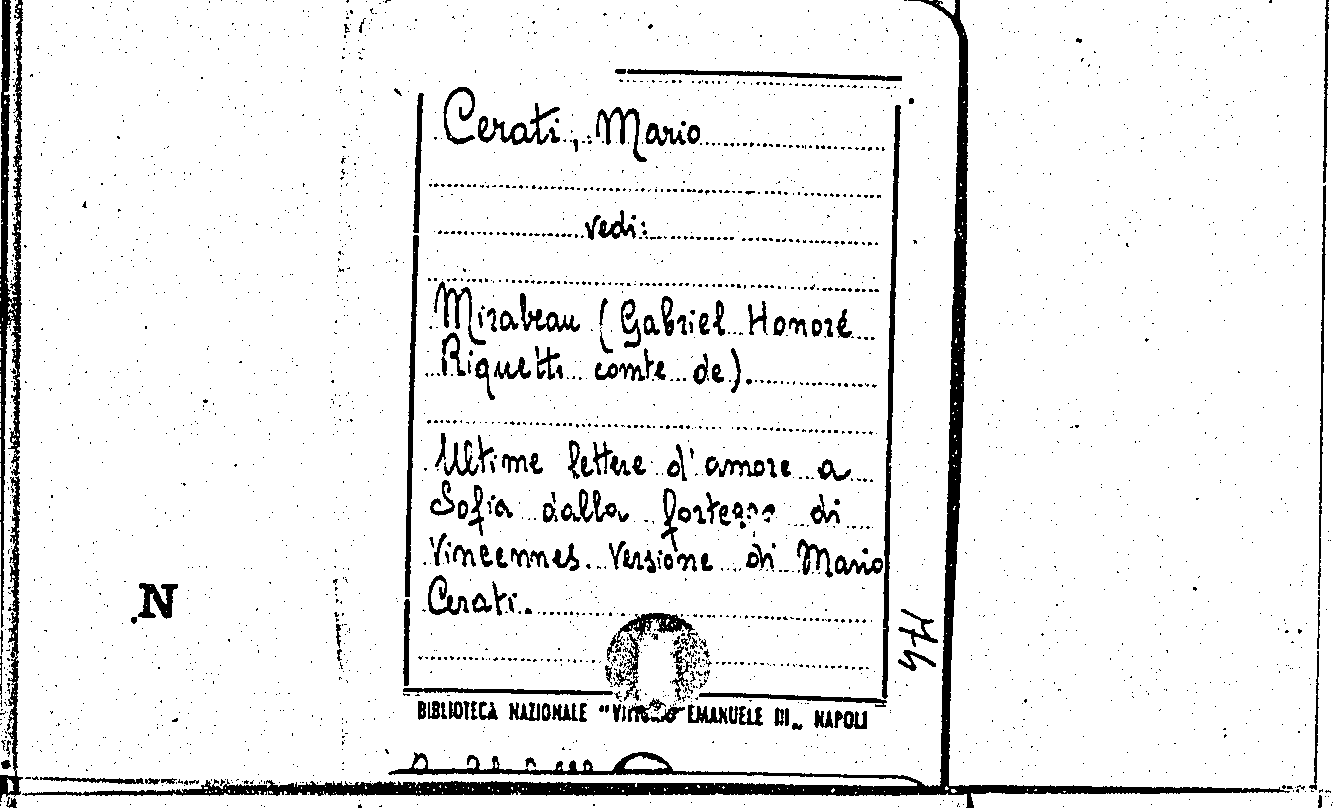 Cerati, Mario
vedi:
Mirabeau (Gabriel Honoré
Riquetti comte de).
Ultime lettere d'amore a
Sofia dalla fortezza di
Vincennes. Versione di Mario
Cerati.
N
BIBLIOTECA NAZIONALE "VITTORIO EMANUELE III„ NAPOLI